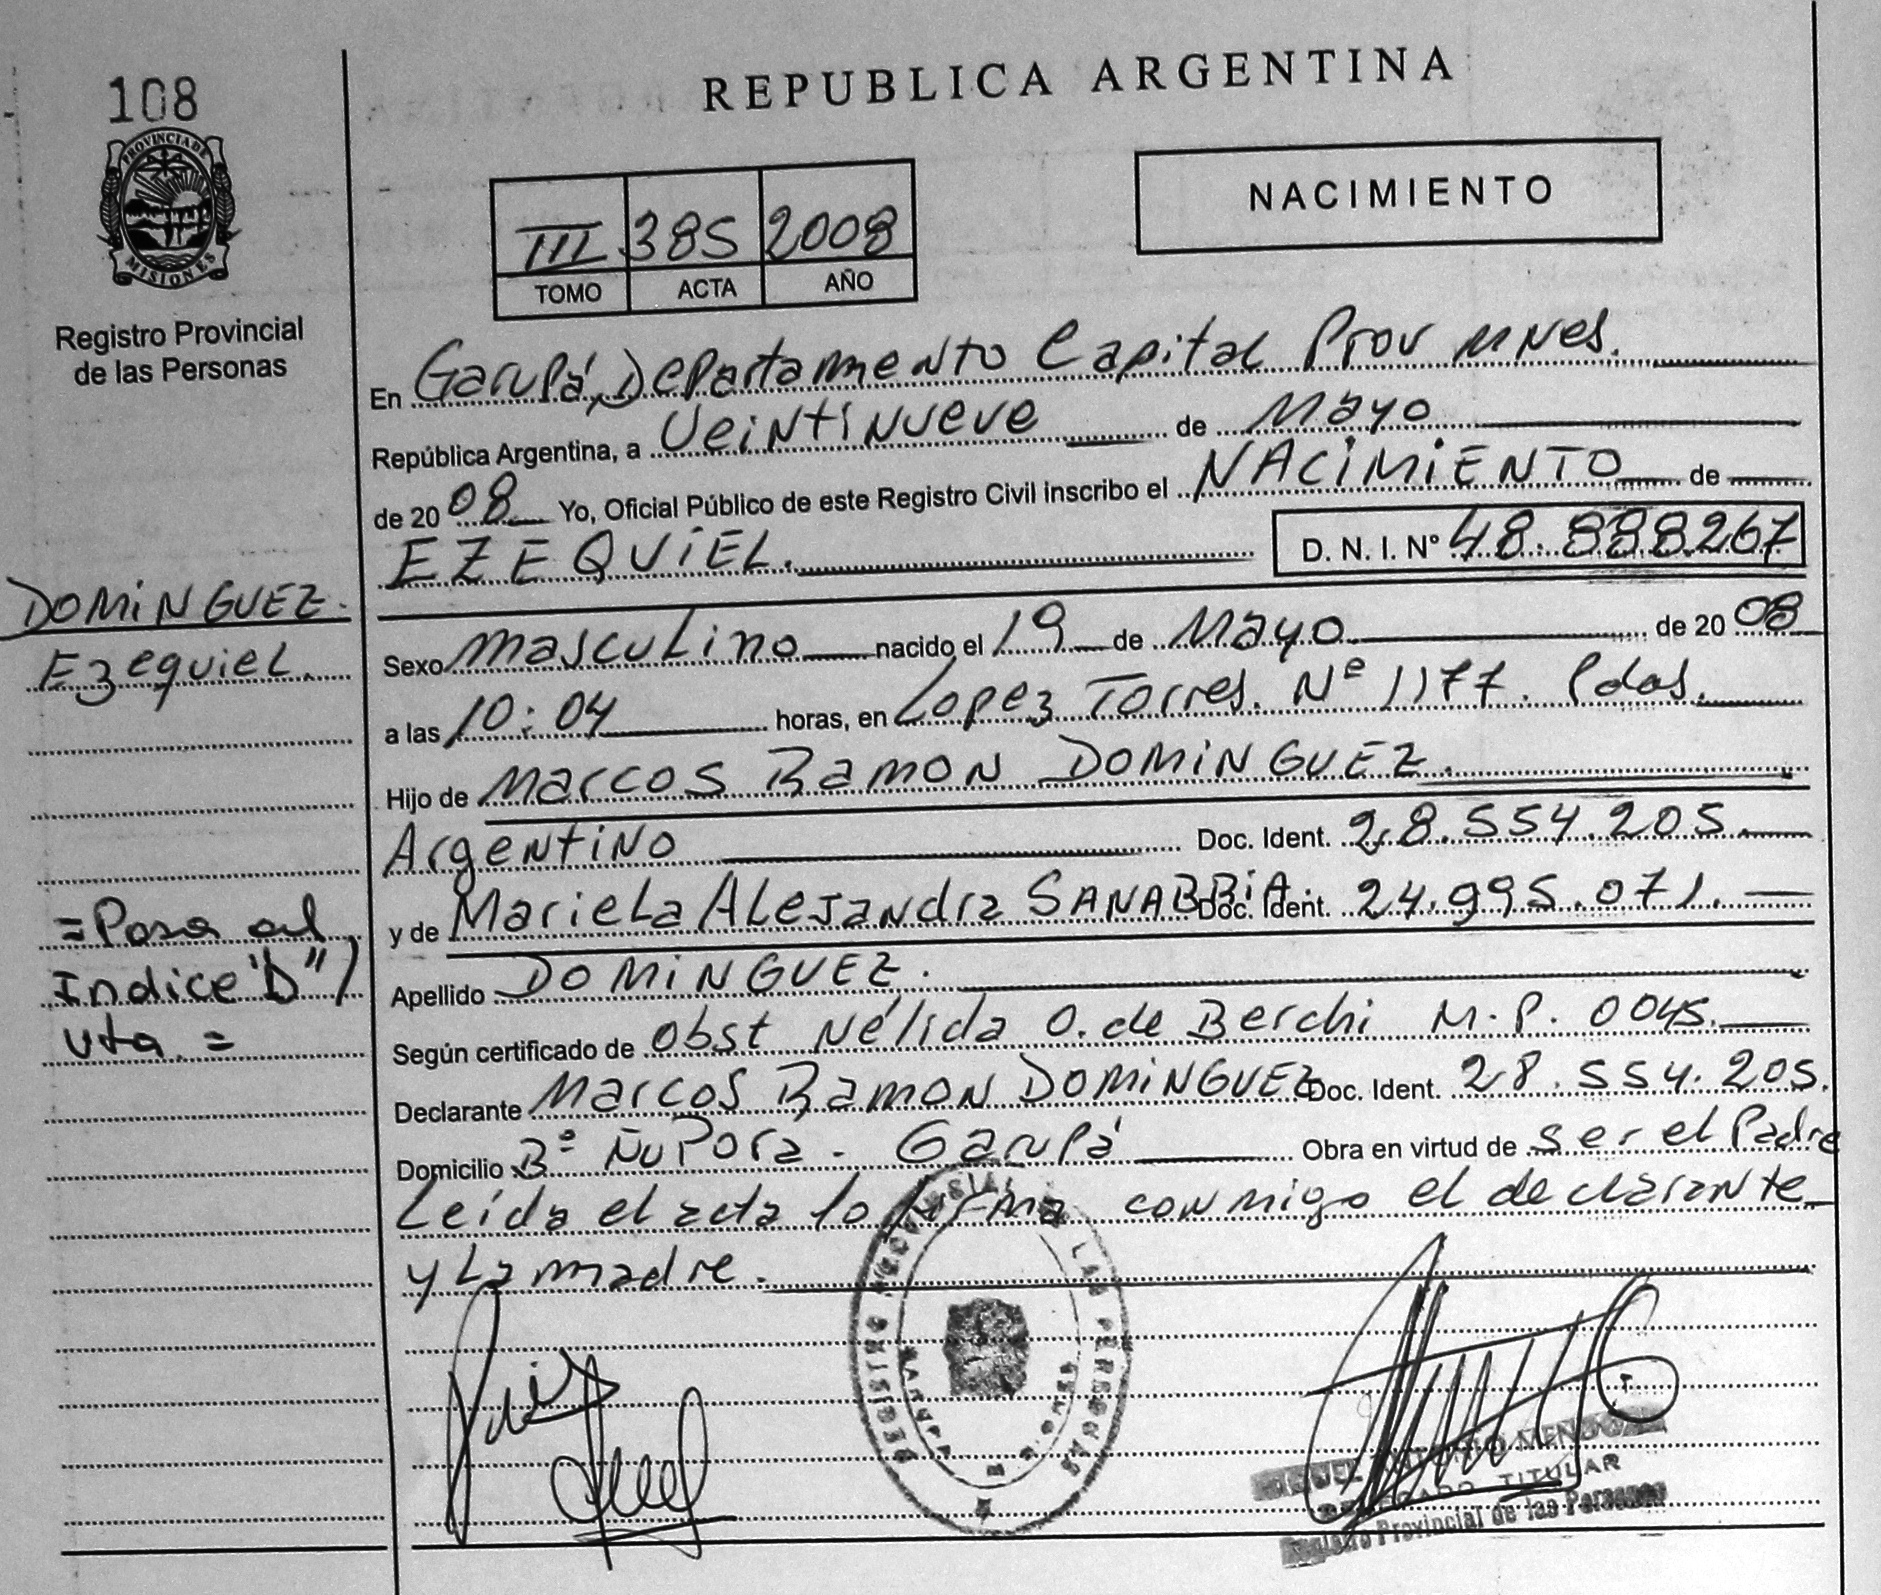 108
REPUBLICA ARGENTINA
PROVINCIA DE
MISIONES
Registro Provincial
de las Personas
NACIMIENTO
III 385 2008
TOMO ACTA AÑO
En Garupá, Departamento Capital Prov Mnes.
República Argentina, a Veintinueve de Mayo
de 2008 Yo, Oficial Público de este Registro Civil inscribo el NACIMIENTO de
EZEQUIEL. D. N. I. N° 48.888267
DOMINGUEZ.
Ezequiel.
Sexo Masculino nacido el 19 de Mayo de 2008
a las 10:04 horas, en Lopez Torres. Nº 1177. Pdas.
Hijo de Marcos Ramon DOMINGUEZ.
Argentino Doc. Ident. 28.554.205.
y de Mariela Alejandra SANABRIA. Doc. Ident. 24.995.071.
=Pasa al
Indice "D"/
vta. =
Apellido DOMINGUEZ.
Según certificado de Obst Nélida O. de Berchi M.P. 0045.
Declarante Marcos Ramon DOMINGUEZ Doc. Ident. 28.554.205.
Domicilio Bº Ñu Pora - Garupá Obra en virtud de ser el Padre
Leída el acta lo firma conmigo el declarante
y la madre.
REGISTRO PROVINCIAL DE LAS PERSONAS
GARUPA
MENDOZA
DELEGADO TITULAR
Registro Provincial de las Personas